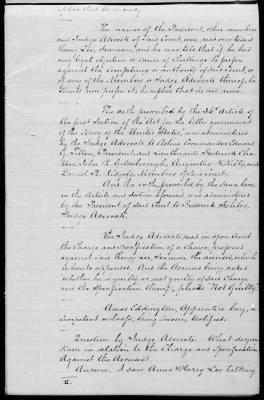 The names of the President, other members
and Judge Advocate of said Court, were read over to said
Henry Lee, Seaman, and he was told that if he had
any legal objection or cause of challenge to prefer
against the competency or authority of said Court, or
of any of the Members or Judge Advocate thereof, he
should now prefer it. He replied that he had none.
The oath prescribed by the 36th Article of
the first section of the Act for the better government
of the Navy of the United States, was administered
by the Judge Advocate to Acting Commander Edward
Tilton, President, and Lieutenants Frederick
John R. Goldsborough, Augustus McKitty, and
Daniel B. Ridgely, Members of said Court.
And the oath, prescribed by the same law
in the Article and Section aforesaid, was administered
by the President of said Court to
Judge Advocate.
The Judge Advocate, read in open Court
the Charge and Specification of a Charge, preferred
against said Henry Lee, Seaman, the accused, which
is hereto appended. And the accused being asked
whether he is guilty or not guilty of said Charge
and the Specification thereof, pleads "Not Guilty".
Amos Eddington, Apprentice boy, a
competent witness, being sworn, testified.
Question by Judge Advocate. What do you
know in relation to the Charge and Specification
against the Accused?
Answer. I saw Amos & Harry Lee talking